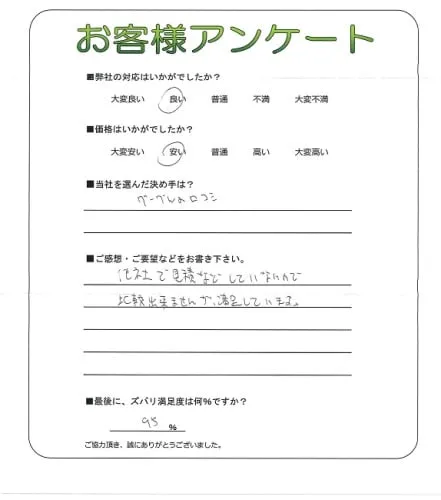 お客様アンケート
■弊社の対応はいかがでしたか？
大変良い 良い 普通 不満 大変不満
■価格はいかがでしたか？
大変安い 安い 普通 高い 大変高い
■当社を選んだ決め手は？
グーグルの口コミ
■ご感想・ご要望などをお書き下さい。
他社で見積などしていないので
比較出来ませんが、満足しています。
■最後に、ズバリ満足度は何％ですか？
95 ％
ご協力頂き、誠にありがとうございました。